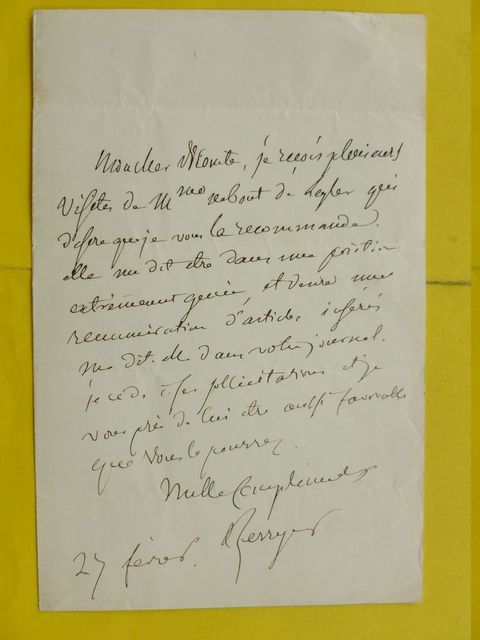 Mon cher Vicomte, je reçois plusieurs
visites de Mme de qui
désire que je vous la recommande.
elle me dit être dans une position
extrêmement gênée, et désire une
rémunération d'articles insérés
me dit-elle dans votre journal.
je cède à ses sollicitations et je
vous prie de lui être aussi favorable
que vous le pourrez.
Mille Compliments
27 févr. Berryer